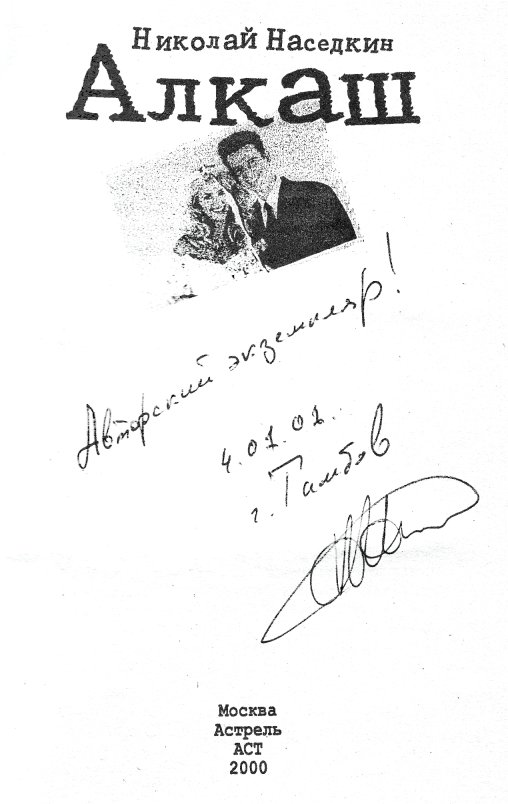 Николай Наседкин
Алкаш
Авторский экземпляр!
4.01.01.
г. Тамбов
Москва
Астрель
АСТ
2000